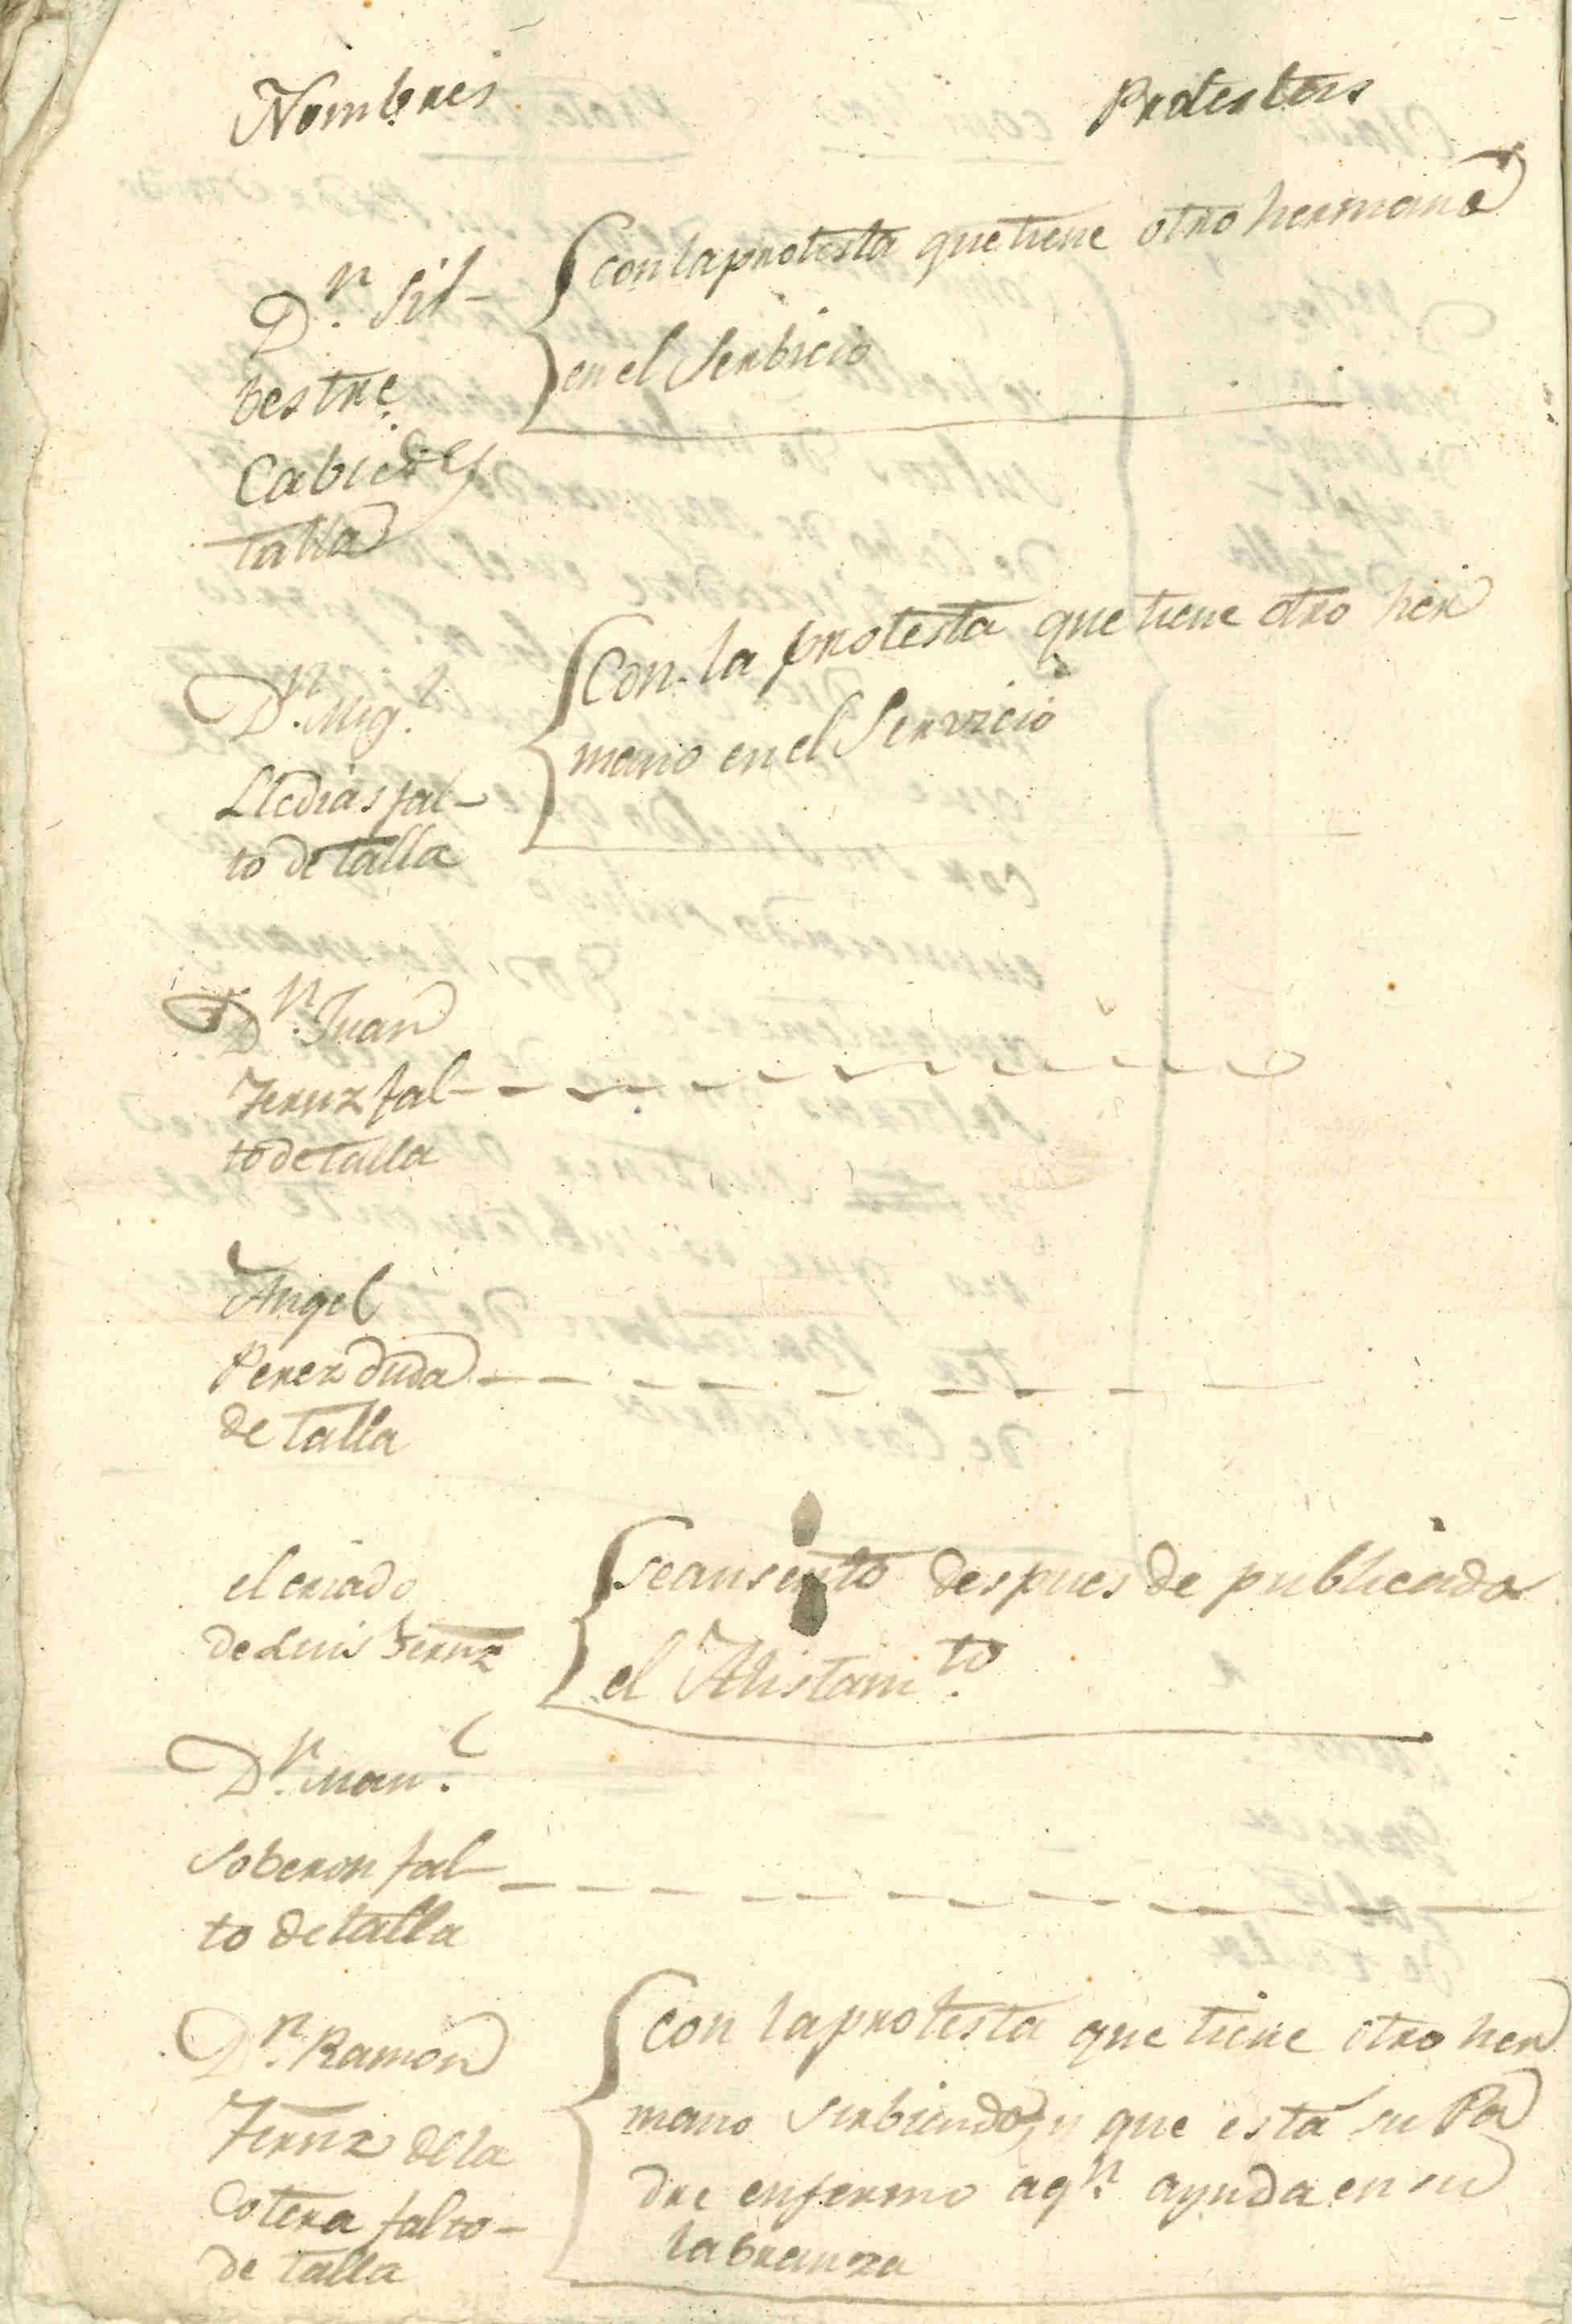 Nombres
Protestas
Dn. Sil-
bestre
Cabiedes
talla
con la protesta que tiene otro hermano
en el Serbicio
Dn. Mig.l
Lledias fal-
to de talla
Con la protesta que tiene otro her
mano en el Servicio
Dn. Juan
Fernz fal-
to de talla
Angel
Perez duda
de talla
el criado
de Luis Fernz
se ausento despues de publicado
el Alistam.to
Dn. Man.l
Soberon fal-
to de talla
Dn. Ramon
Fernz de la
Cotera falto-
de talla
con la protesta que tiene otro her
mano serbiendo, y que está su Pa
dre enfermo a qn. ayuda en su
labranza